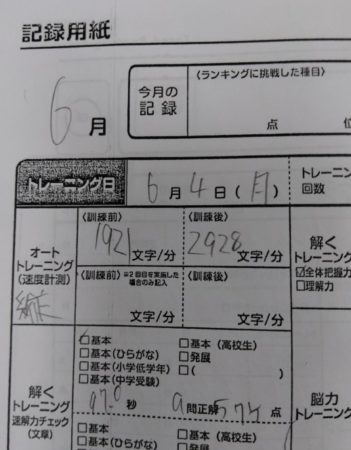 記録用紙
6月
今月の記録
〈ランキングに挑戦した種目〉
点 位
トレーニング日
6月4日(月)
トレーニン
回数
オートトレーニング
(速度計測)
縦
〈訓練前〉
1921 文字/分
〈訓練後〉
2928 文字/分
〈訓練前〉※2回目を実施した場合のみ記入
文字/分
〈訓練後〉
文字/分
解く
トレーニン
☑全体把握力
□理解力
解く
トレーニング
速解力チェック
(文章)
□基本
□基本(ひらがな)
□基本(小学低学年)
□基本(中学受験)
□基本(高校生)
□発展
□( )
秒 9問正解 574点
脳力
トレーニング
□基本
□基本(ひらがな)
□基本(高校生)
□発展